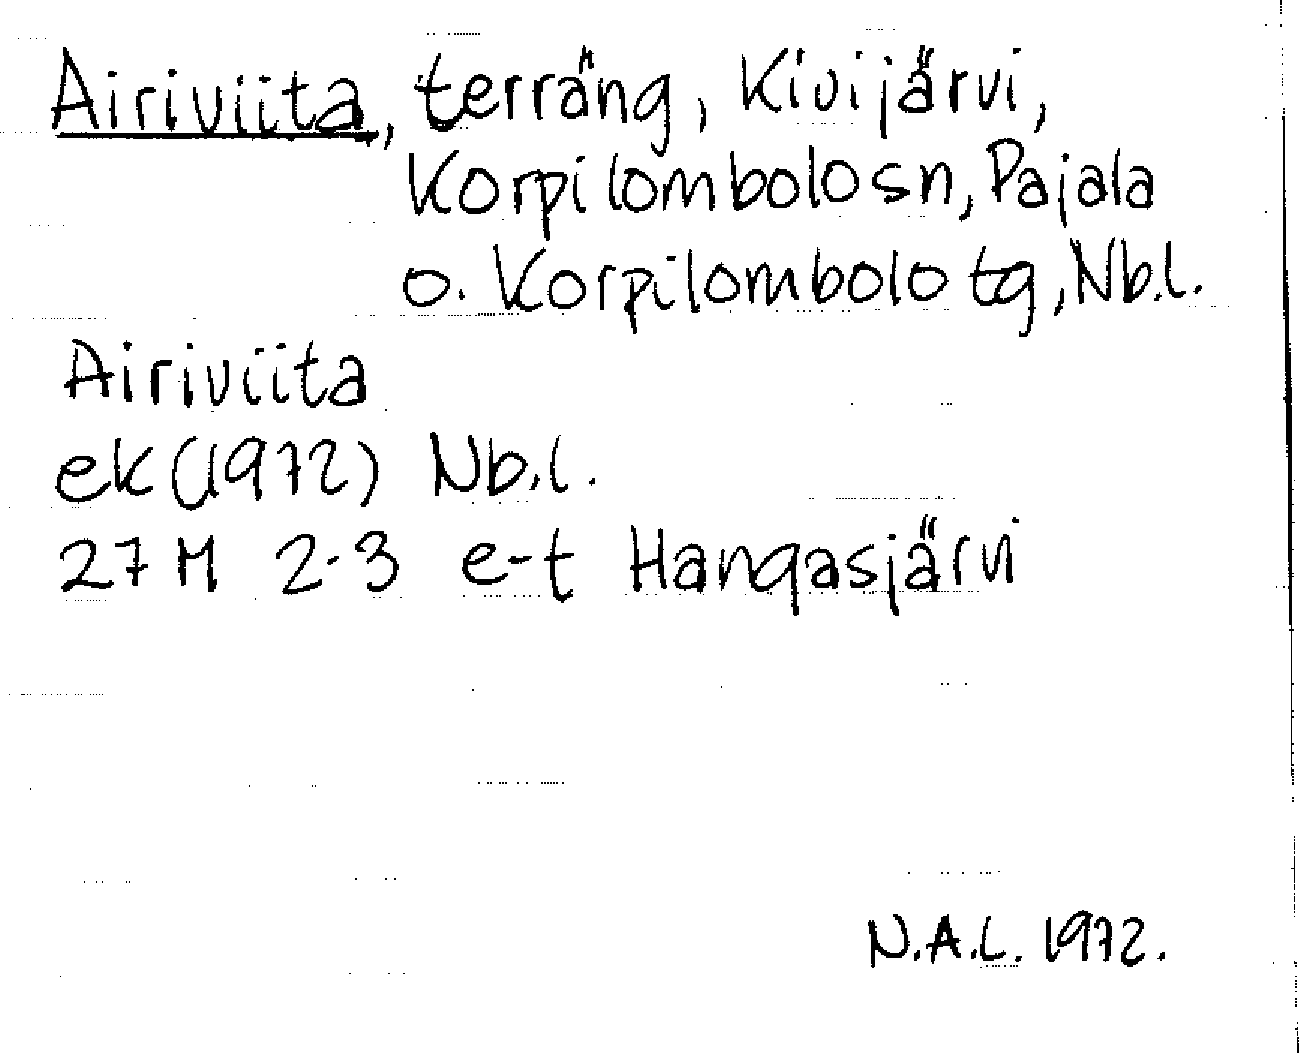 Airiviita, terräng, Kivijärvi,
Korpilombolo sn, Pajala
o. Korpilombolo tg, Nb.l.
Airiviita
ek (1972) Nb.l.
27 M 2-3 e-t Hangasjärvi
N.A.L. 1972.